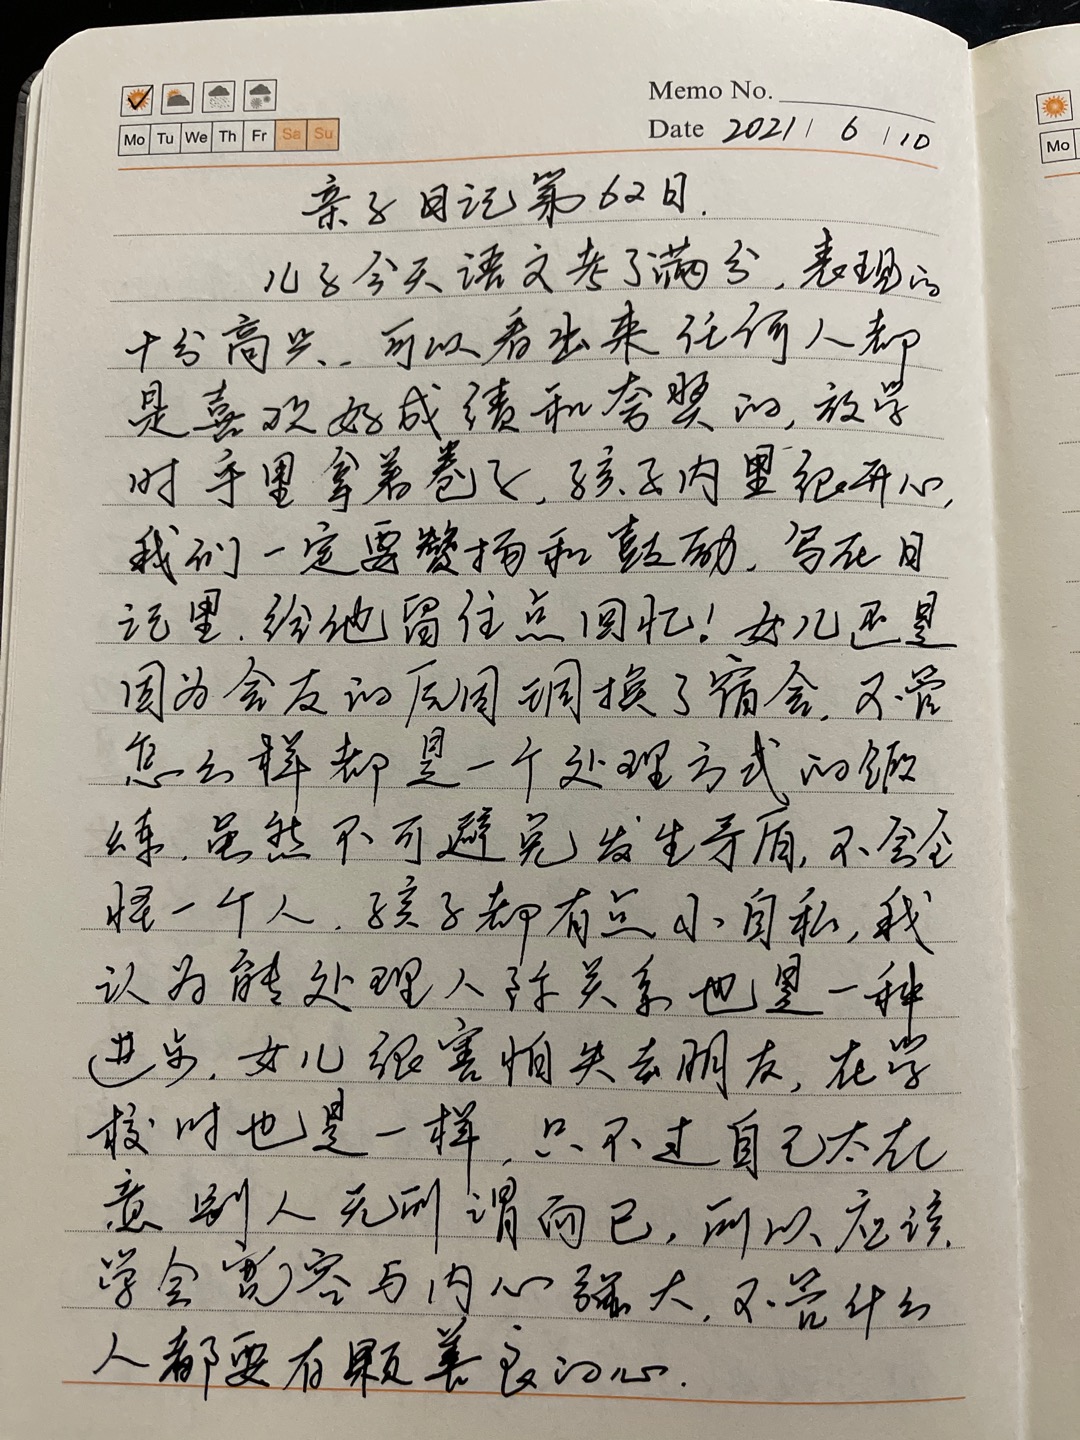 Memo No.
Mo Tu We Th Fr Sa Su
Date 2021 / 6 / 10
Mo
亲子日记第62日.
儿子今天语文考了满分，表现的
十分高兴，可以看出来任何人都
是喜欢好成绩和夸奖的，放学
时手里拿着卷子，孩子内里很开心，
我们一定要赞扬和鼓励，写在日
记里，给他留住点回忆！女儿还是
因为舍友的原因调换了宿舍，不管
怎么样都是一个处理方式的锻
练，虽然不可避免发生矛盾，不会全
怪一个人，孩子都有点小自私，我
认为能处理人际关系也是一种
进步，女儿很害怕失去朋友，在学
校时也是一样，只不过自己太在
意别人无所谓而已，所以应该
学会宽容与内心强大，不管什么
人都要有颗善良的心.